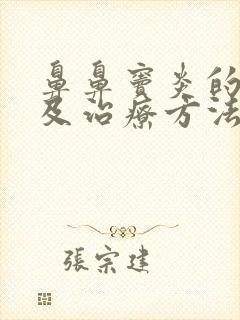 鼻鼻窦炎的
及治療方法
張宗建